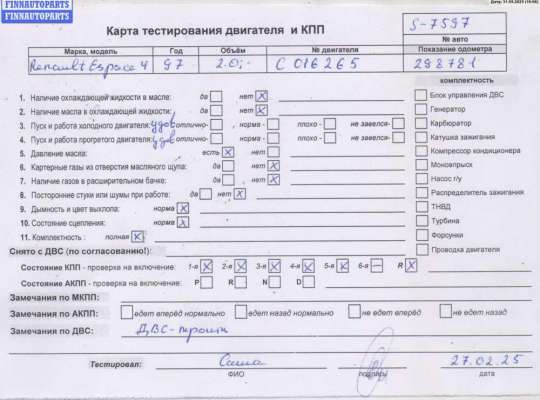 FINNAUTOPARTS
FINNAUTOPARTS
Карта тестирования двигателя и КПП
S-7597
№ авто
Марка, модель Год Объём № двигателя Показание одометра
Renault Espace 4 97 2.0 C 016265 298781
комплектность
1. Наличие охлаждающей жидкости в масле: да нет X
Блок управления ДВС
2. Наличие масла в охлаждающей жидкости: да нет X
Генератор
3. Пуск и работа холодного двигателя: удов отлично- норма - плохо - не завелся-
Карбюратор
4. Пуск и работа прогретого двигателя: удов отлично- норма - плохо - не завелся-
Катушка зажигания
5. Давление масла: есть X нет
Компрессор кондиционера
6. Картерные газы из отверстия масляного щупа: да нет X
Моновпрыск
7. Наличие газов в расширительном бачке: да нет X
Насос г/у
8. Посторонние стуки или шумы при работе: да нет X
Распределитель зажигания
9. Дымность и цвет выхлопа: норма X
ТНВД
10. Состояние сцепления: норма X
Турбина
11. Комплектность : полная X
Форсунки
Снято с ДВС (по согласованию!):
Проводка двигателя
Состояние КПП - проверка на включение: 1-я X 2-я X 3-я X 4-я X 5-я X 6-я — R X
Состояние АКПП - проверка на включение: P R N D
Замечания по МКПП:
Замечания по АКПП: едет вперёд нормально едет назад нормально не едет вперёд не едет назад
Замечания по ДВС: ДВС-троит
Тестировал: Саша 27.02.25
ФИО подпись дата